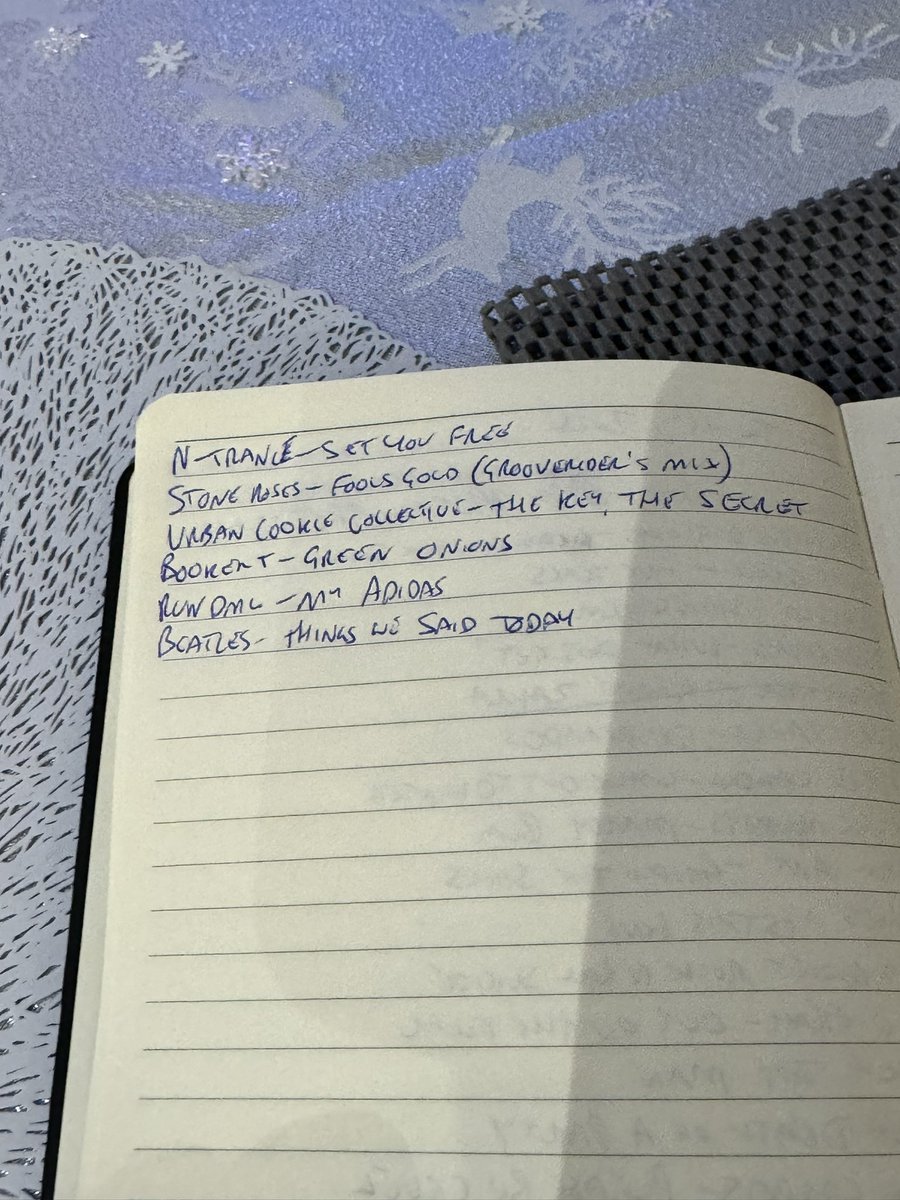 N-TRANCE-SET YOU FREE
STONE ROSES-FOOLS GOLD (GROOVERIDER'S MIX)
URBAN COOKIE COLLECTIVE-THE KEY, THE SECRET
BOOKER T-GREEN ONIONS
RUN DMC-MY ADIDAS
BEATLES-THINGS WE SAID TODAY